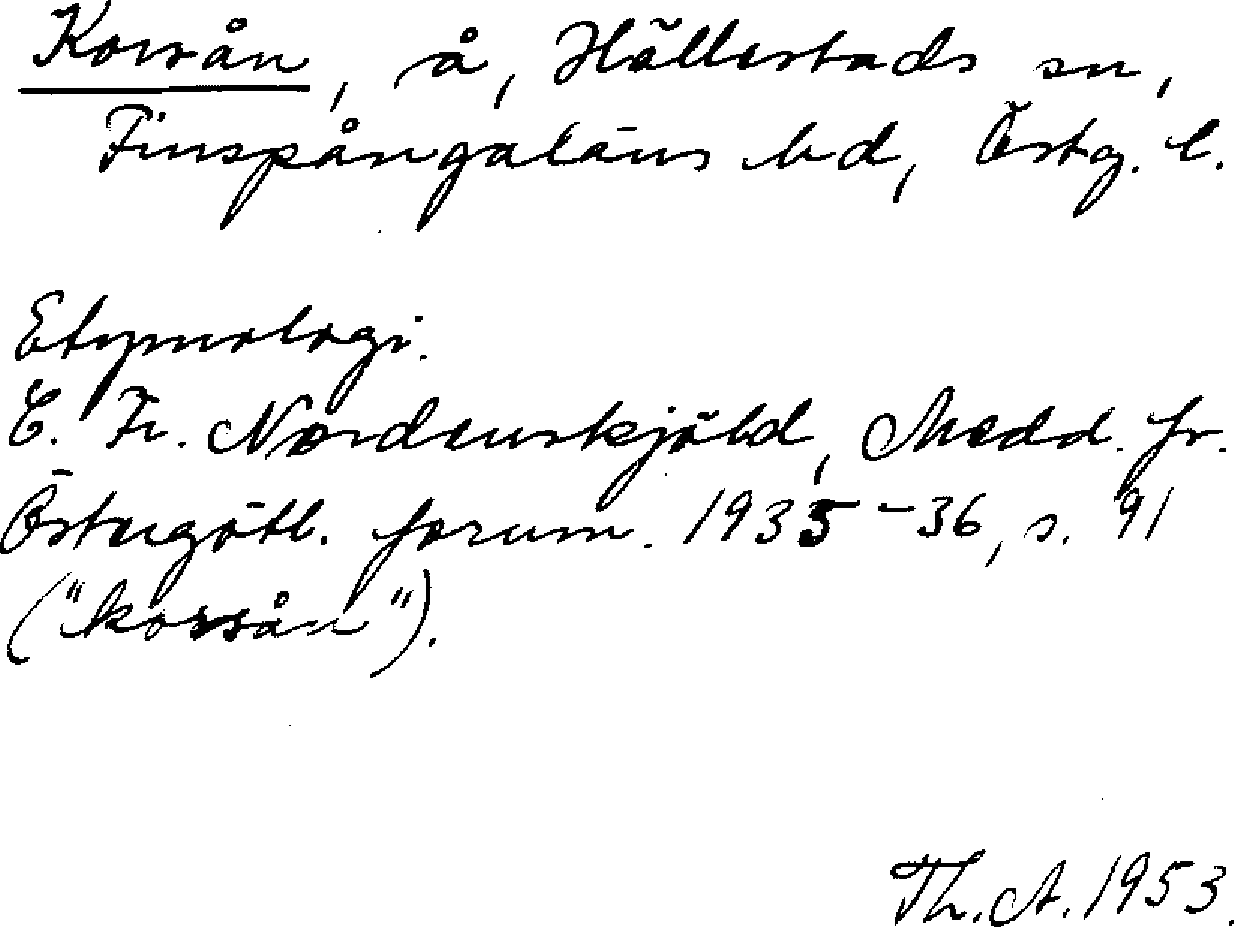 Korsån, å, Hällestads sn,
Finspångaläns hd, Östg. l.
Etymologi.
C. Fr. Nordenskjöld, Medd. fr.
Östergötl. fornm. 1935-36, s. 91
("korsån").
Th. A. 1953.